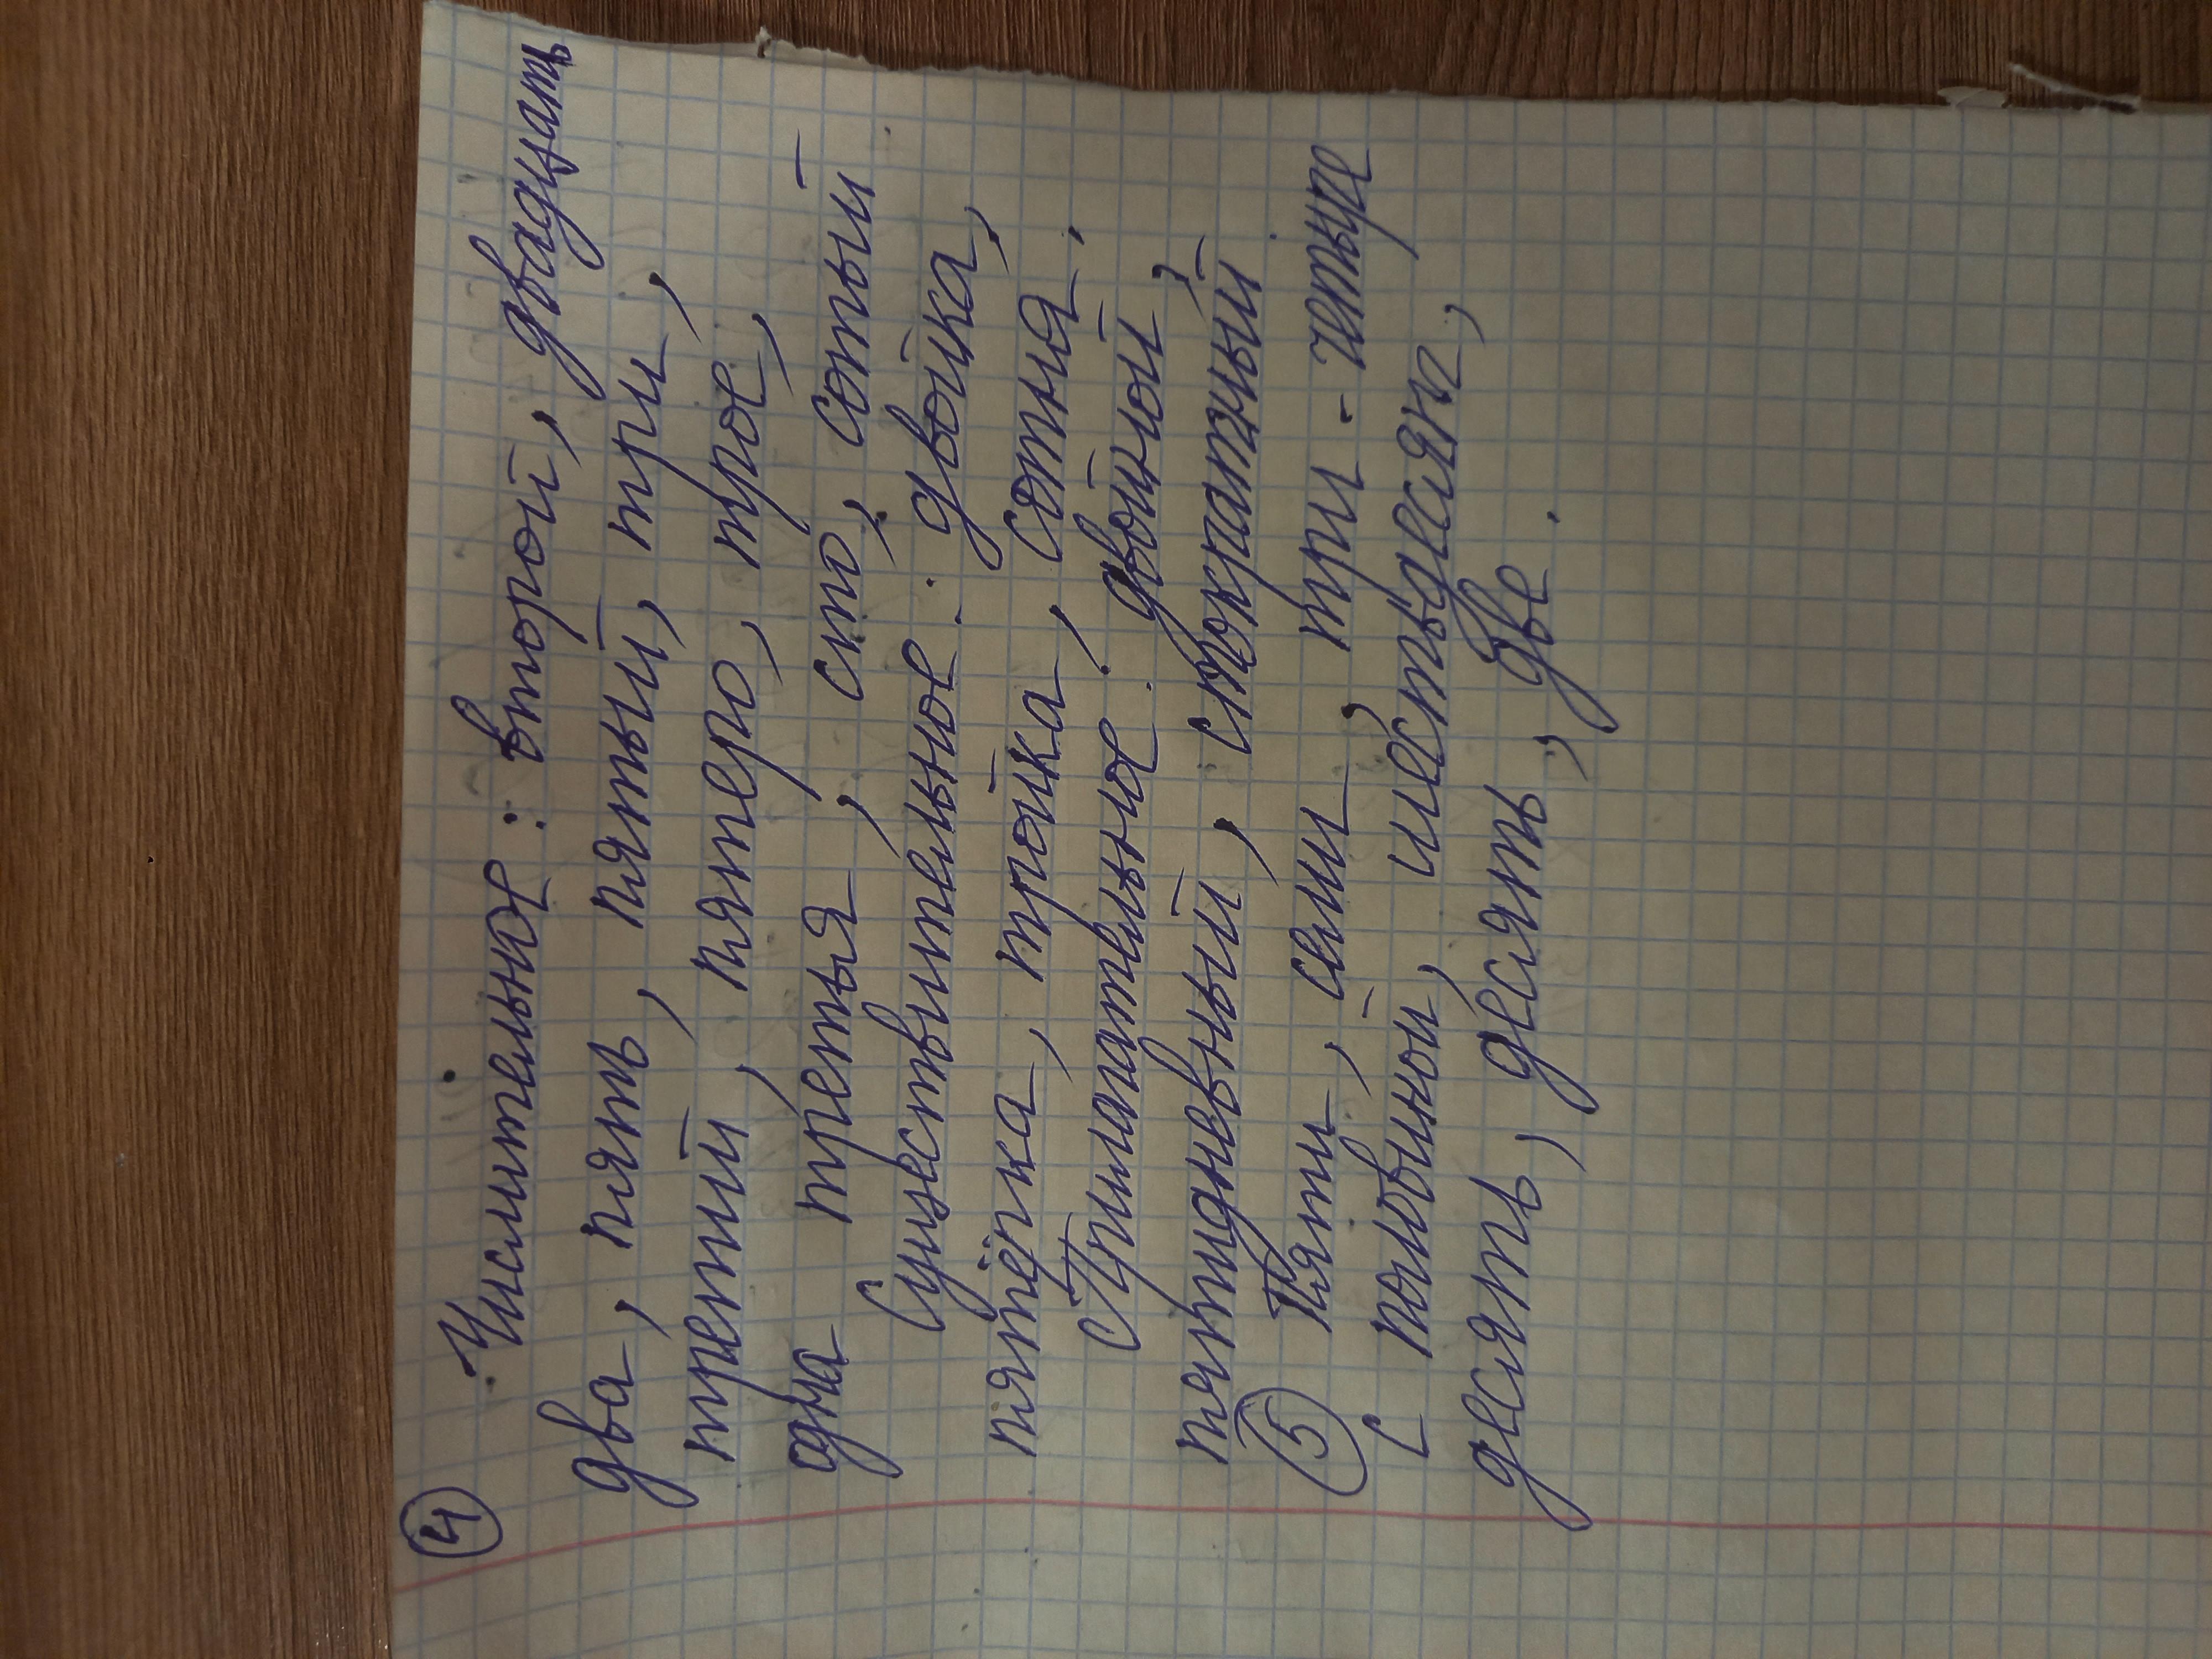 ④ Числительное: второй, двадцать
два, пять, пятый, три,
третий, пятеро, трое,
одна третья, сто, сотый
Существительное: двойка,
пятёрка, тройка, сотня.
Прилагательное: двойной,
пятидневный, стократный
⑤ Пяти, семи, три - четыре
с половиной, шестьдесят,
десять, десять, две.